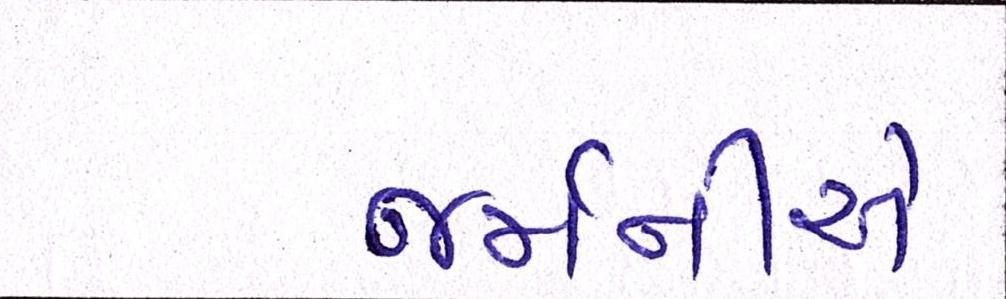 જર્મનીએ